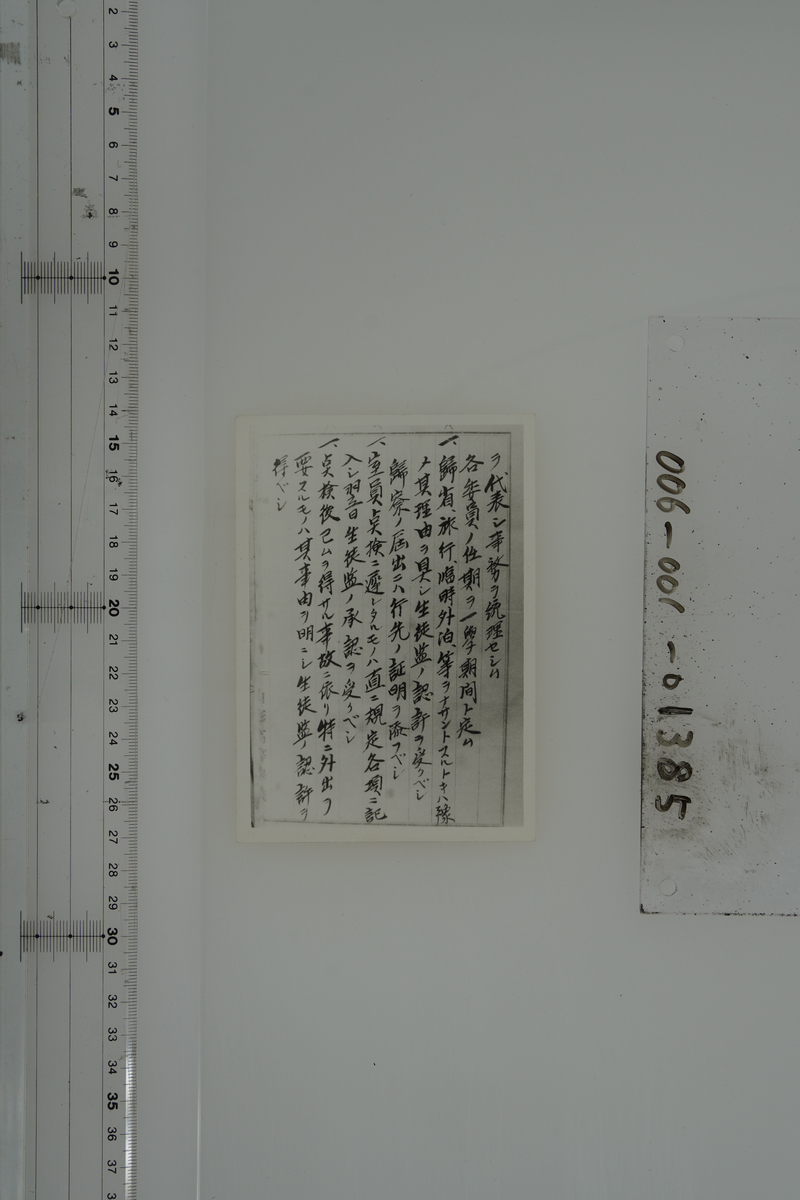 ヲ代表シ事務ヲ統理セシム
各委員ノ任期ヲ一學期間ト定ム
一、歸省、旅行、臨時外泊、等ヲナサントスルトキハ豫
メ其理由ヲ具シ生徒監ノ認許ヲ受クベシ
歸寮ノ届出ニハ行先ノ証明ヲ添フベシ
一、室員点検ニ遲レタルモノハ直ニ規定各項ニ記
入シ翌日生徒監ノ承認ヲ受クベシ
一、点検後已ムヲ得サル事故ニ依リ特ニ外出ヲ
要スルモノハ其事由ヲ明ニシ生徒監ノ認許ヲ
得ベシ
006-001-01385
2
3
4
5
6
7
8
9
10
11
12
13
14
15
16
17
18
19
20
21
22
23
24
25
26
27
28
29
30
31
32
33
34
35
36
37